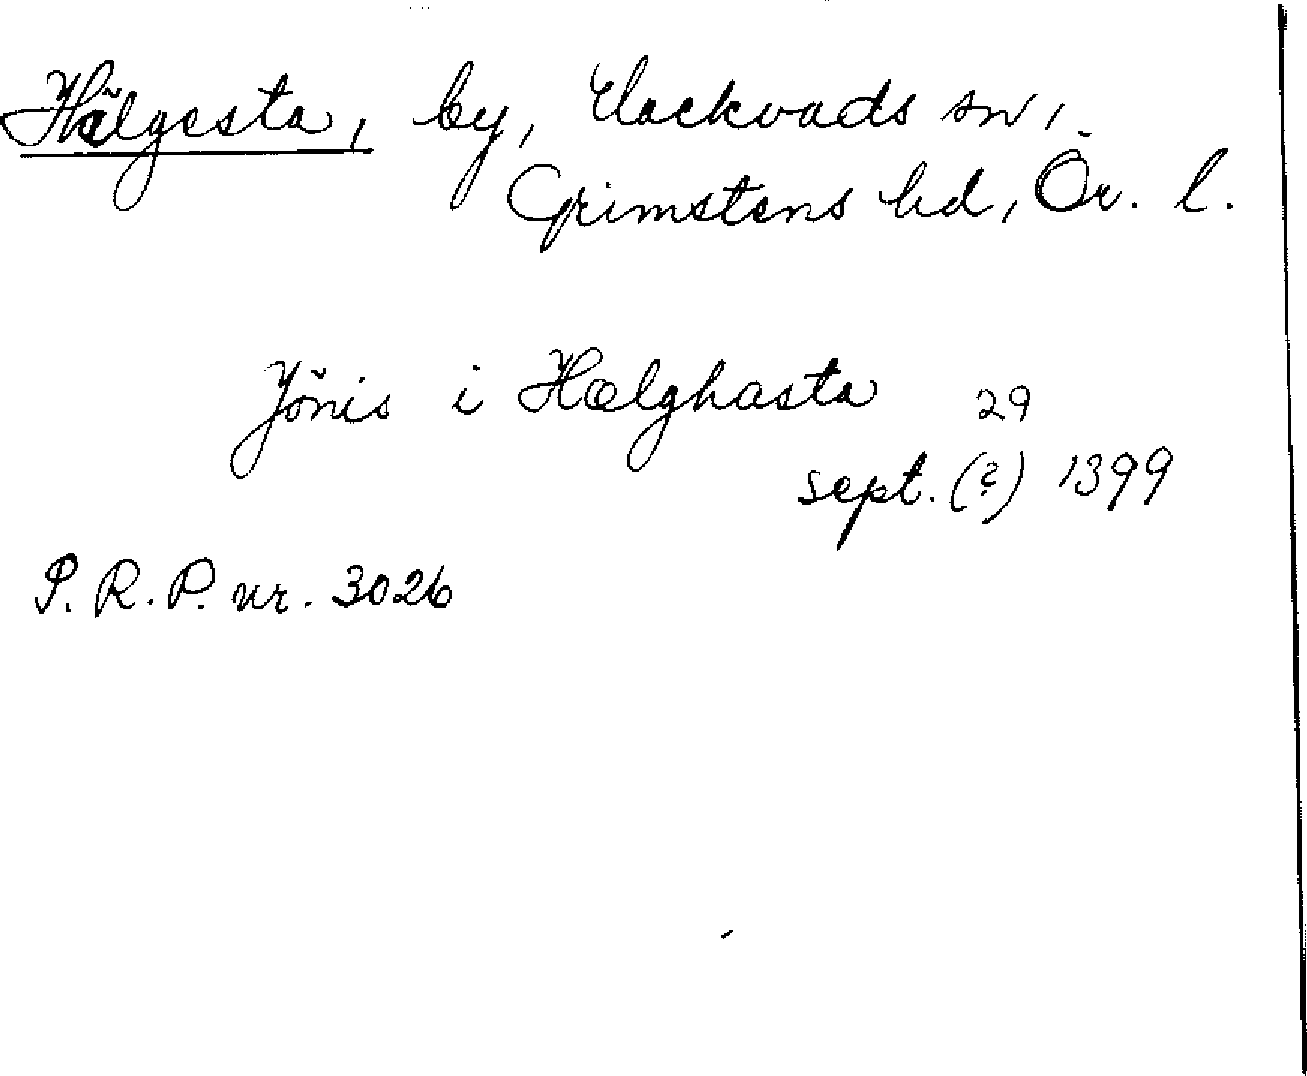 Hälgesta, by, Hackvads sn,
Grimstens hd, Ör. l.
Jönis i Hælghasta 29
sept. (?) 1399
S. R. P. nr. 3026